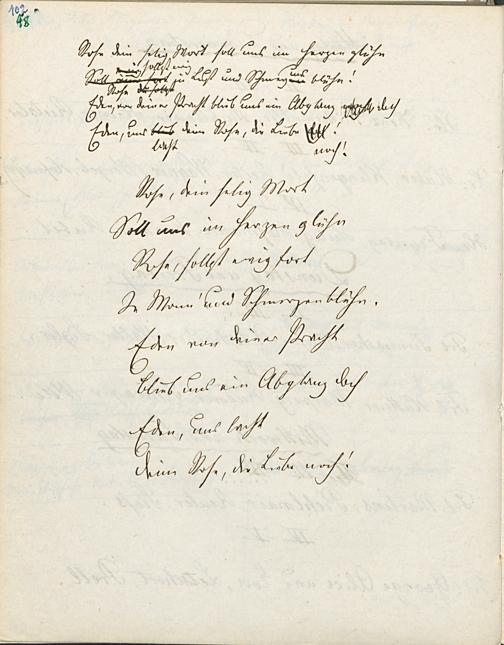 102
48
Rose dein selig Wort soll uns im Herzen glühn
ewig
Soll zu Lust und Schmerz uns blühn!
Rose du sollst
Eden, von deiner Pracht blieb uns ein Abglanz doch
Eden, uns blieb deine Rose, die Liebe !
lacht noch!
Rose, dein selig Wort
Soll uns im Herzen glühn
Rose, sollst ewig fort
In Wonn' und Schmerzen blühn.
Eden von deiner Pracht
Blieb uns ein Abglanz doch
Eden, uns lacht
Deine Rose, die Liebe noch!